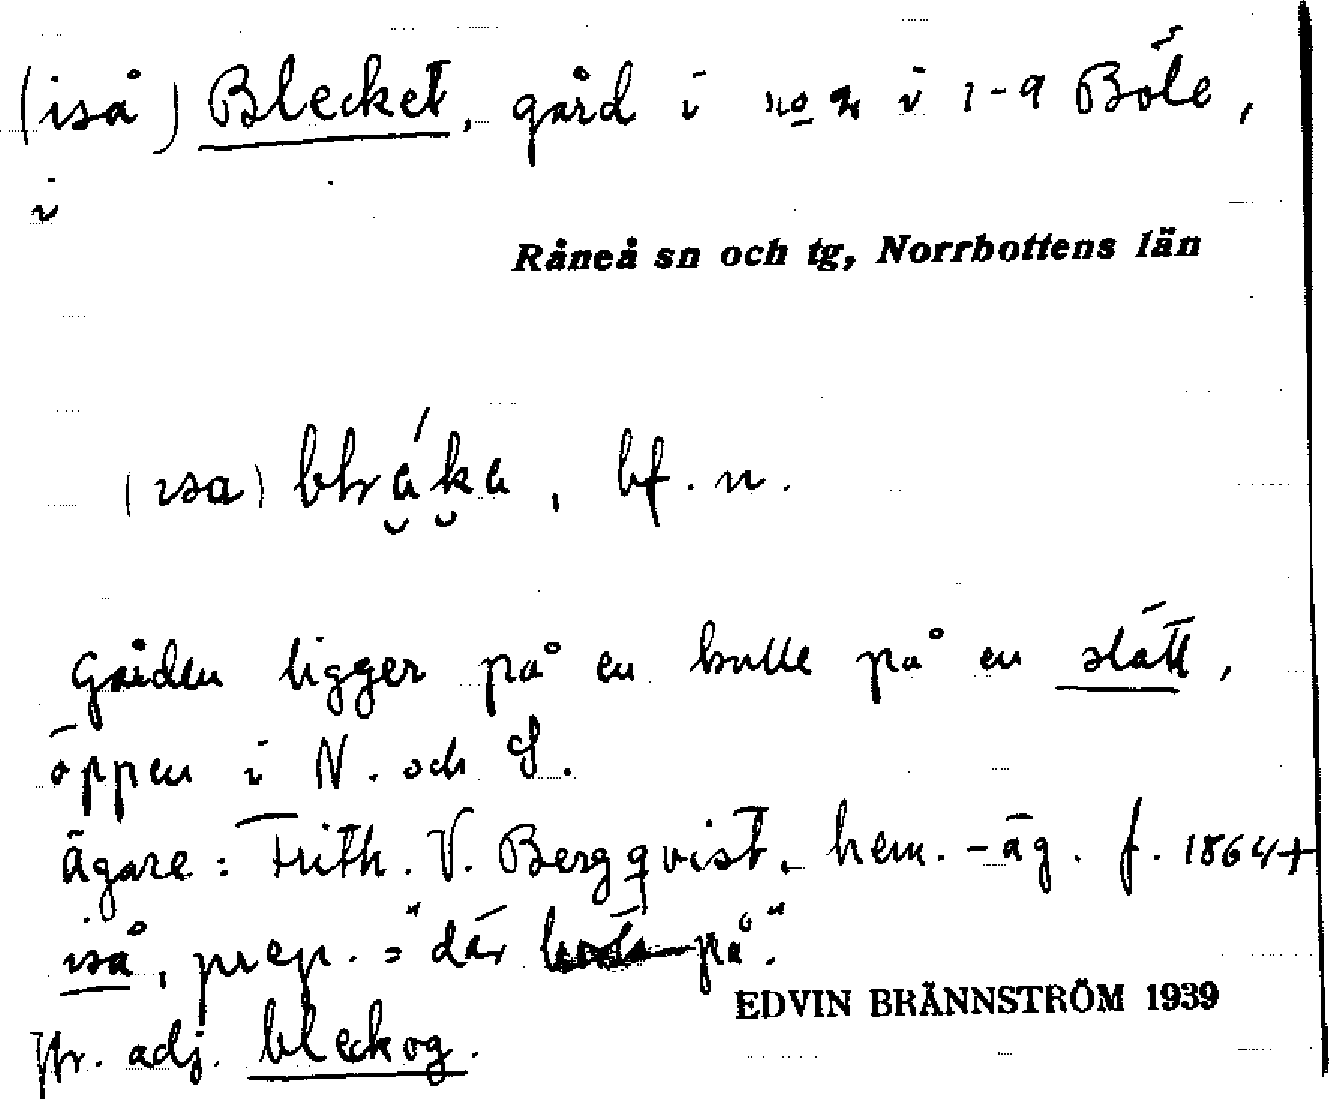 (iså) Blecket, gård i no 2 i 1-9 Böle,
i
Råneå sn och tg, Norrbottens län
(isa) , bf. n.
Gården ligger på en kulle på en slätt,
öppen i N. och S.
Ägare: Frith. V. Bergqvist, hem.-äg. f. 1864+
iså, prep. = "där på".
Jfr. adj. bleckog.
EDVIN BRÄNNSTRÖM 1939